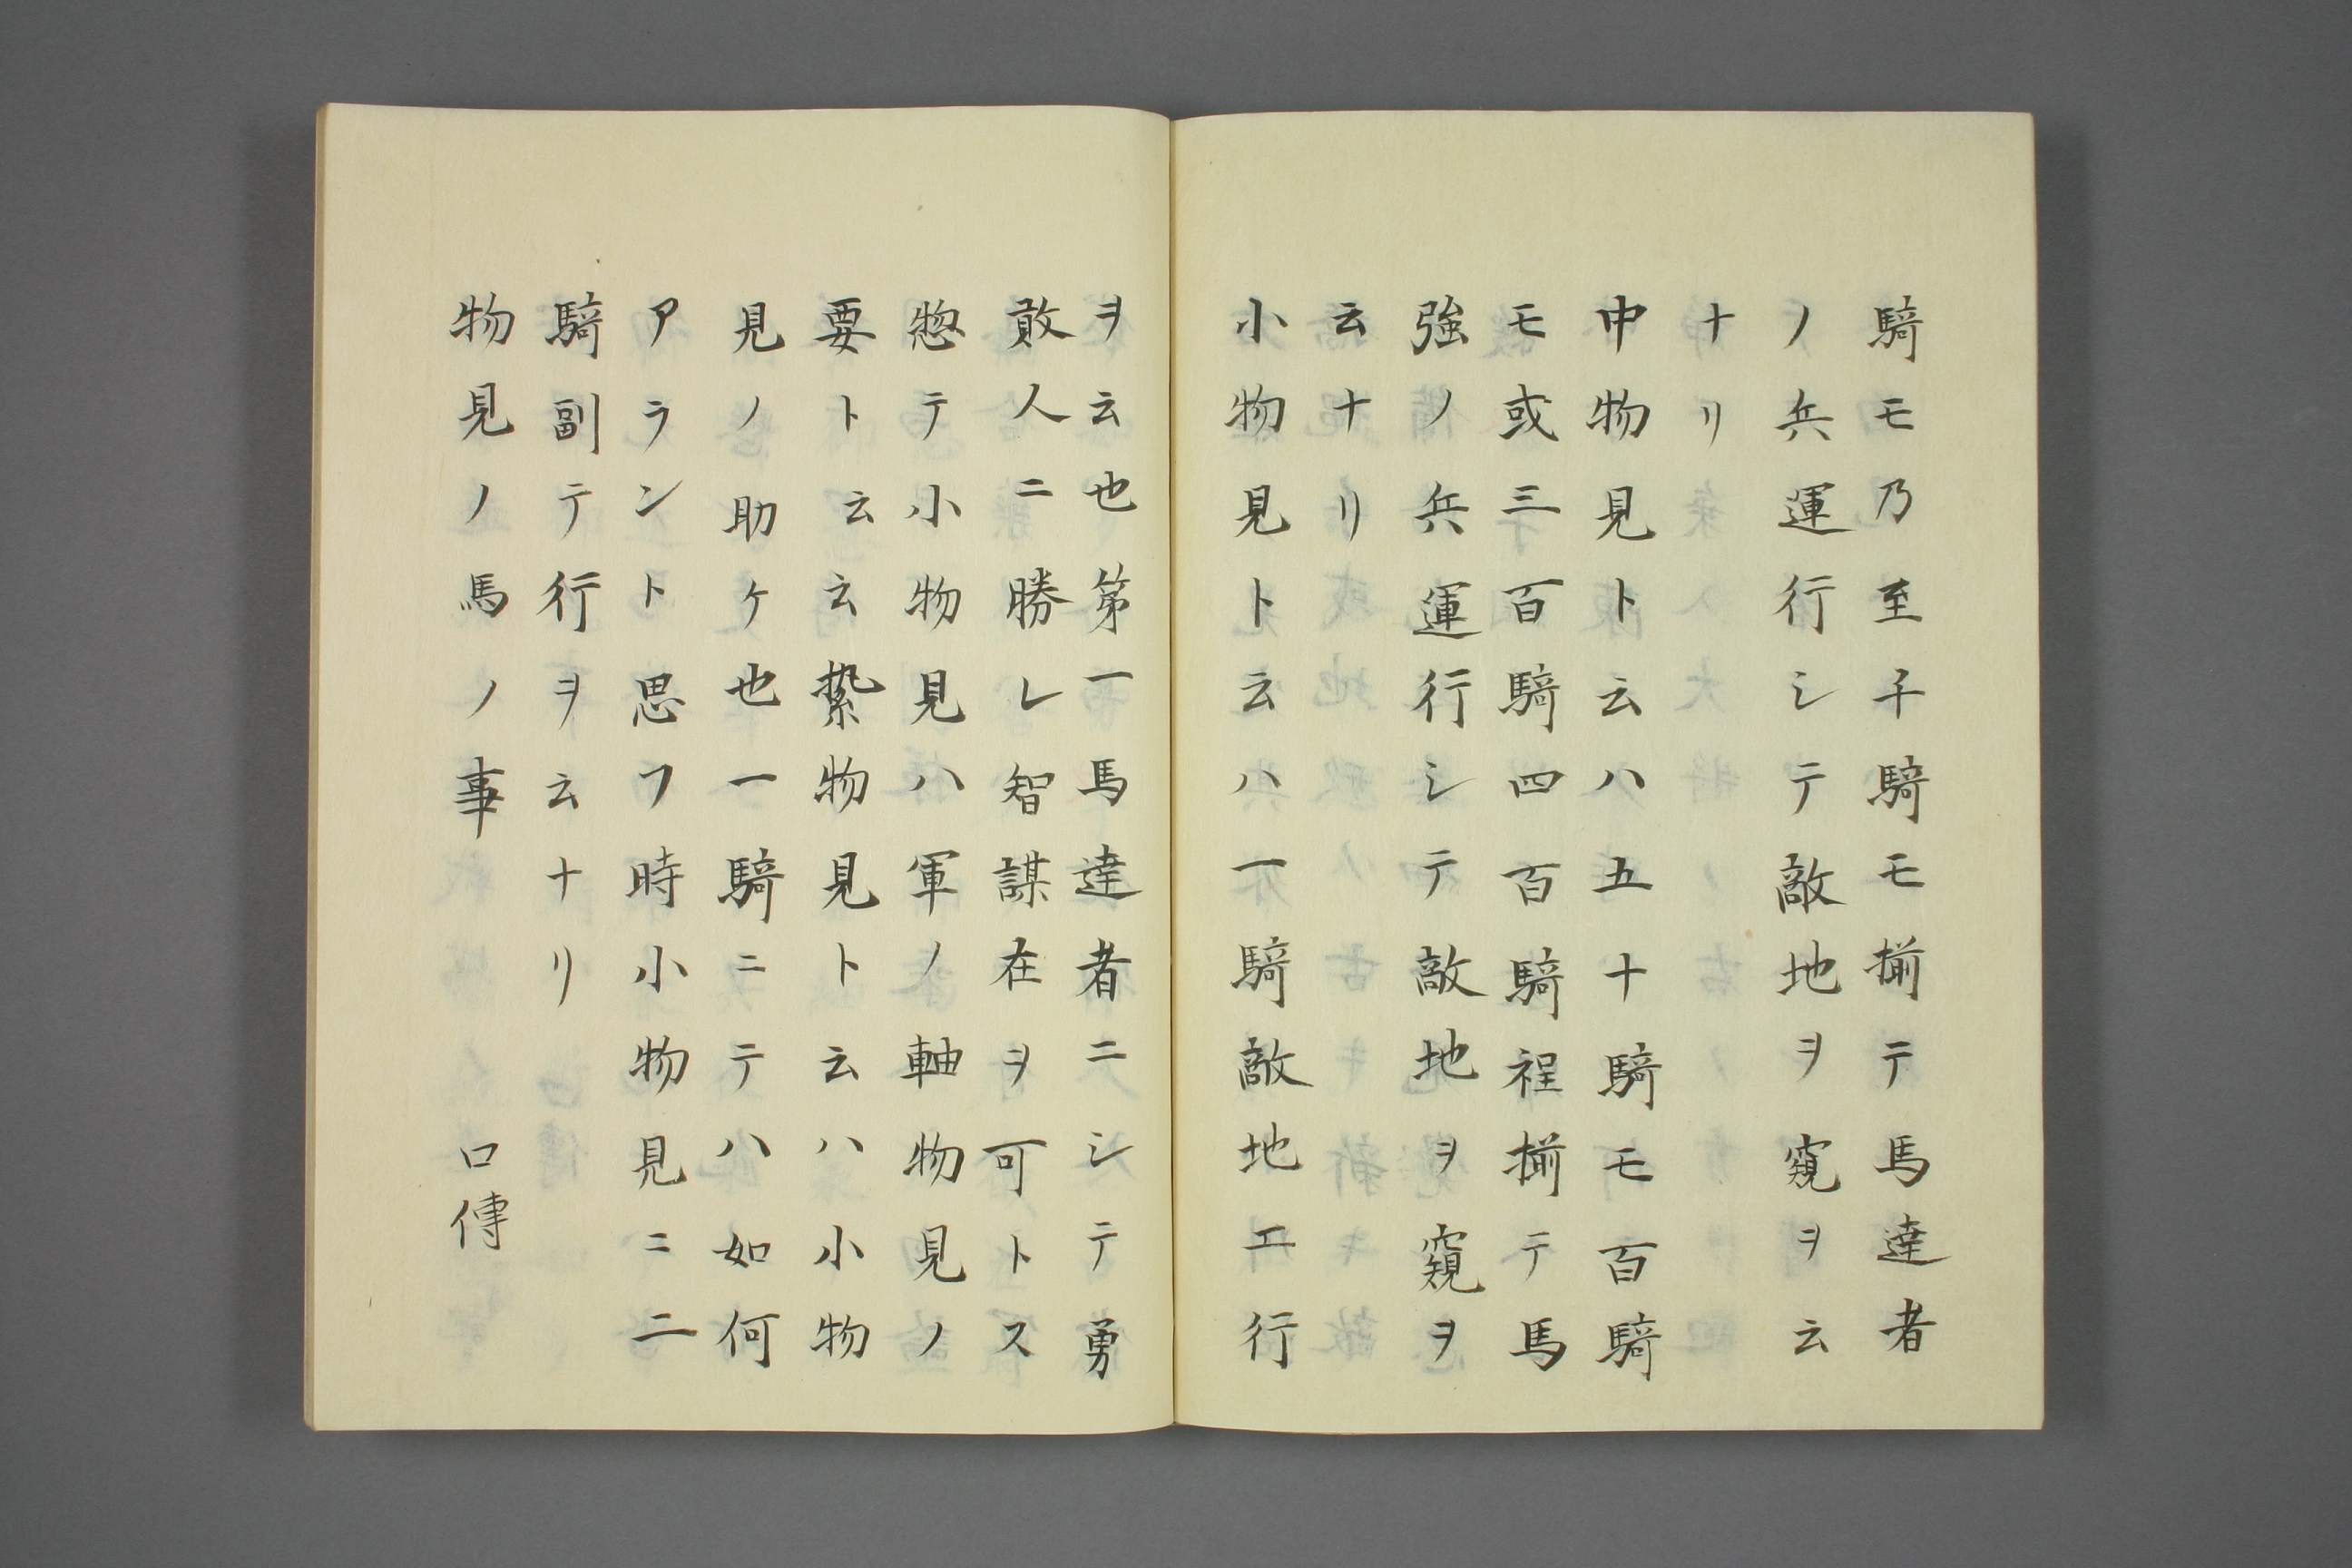 騎モ乃至千騎モ揃テ馬達者
ノ兵運行シテ敵地ヲ窺ヲ云
ナリ
中物見ト云ハ五十騎モ百騎
モ或三百騎四百騎程揃テ馬
強ノ兵運行シテ敵地ヲ窺ヲ
云ナリ
小物見ト云ハ一騎敵地エ行
ヲ云也第一馬達者ニシテ勇
敢人ニ勝レ智謀在ヲ可トス
惣テ小物見ハ軍ノ軸物見ノ
要ト云云縶物見ト云ハ小物
見ノ助ケ也一騎ニテハ如何
アラント思フ時小物見ニ二
騎副テ行ヲ云ナリ
物見ノ馬ノ事 口傳